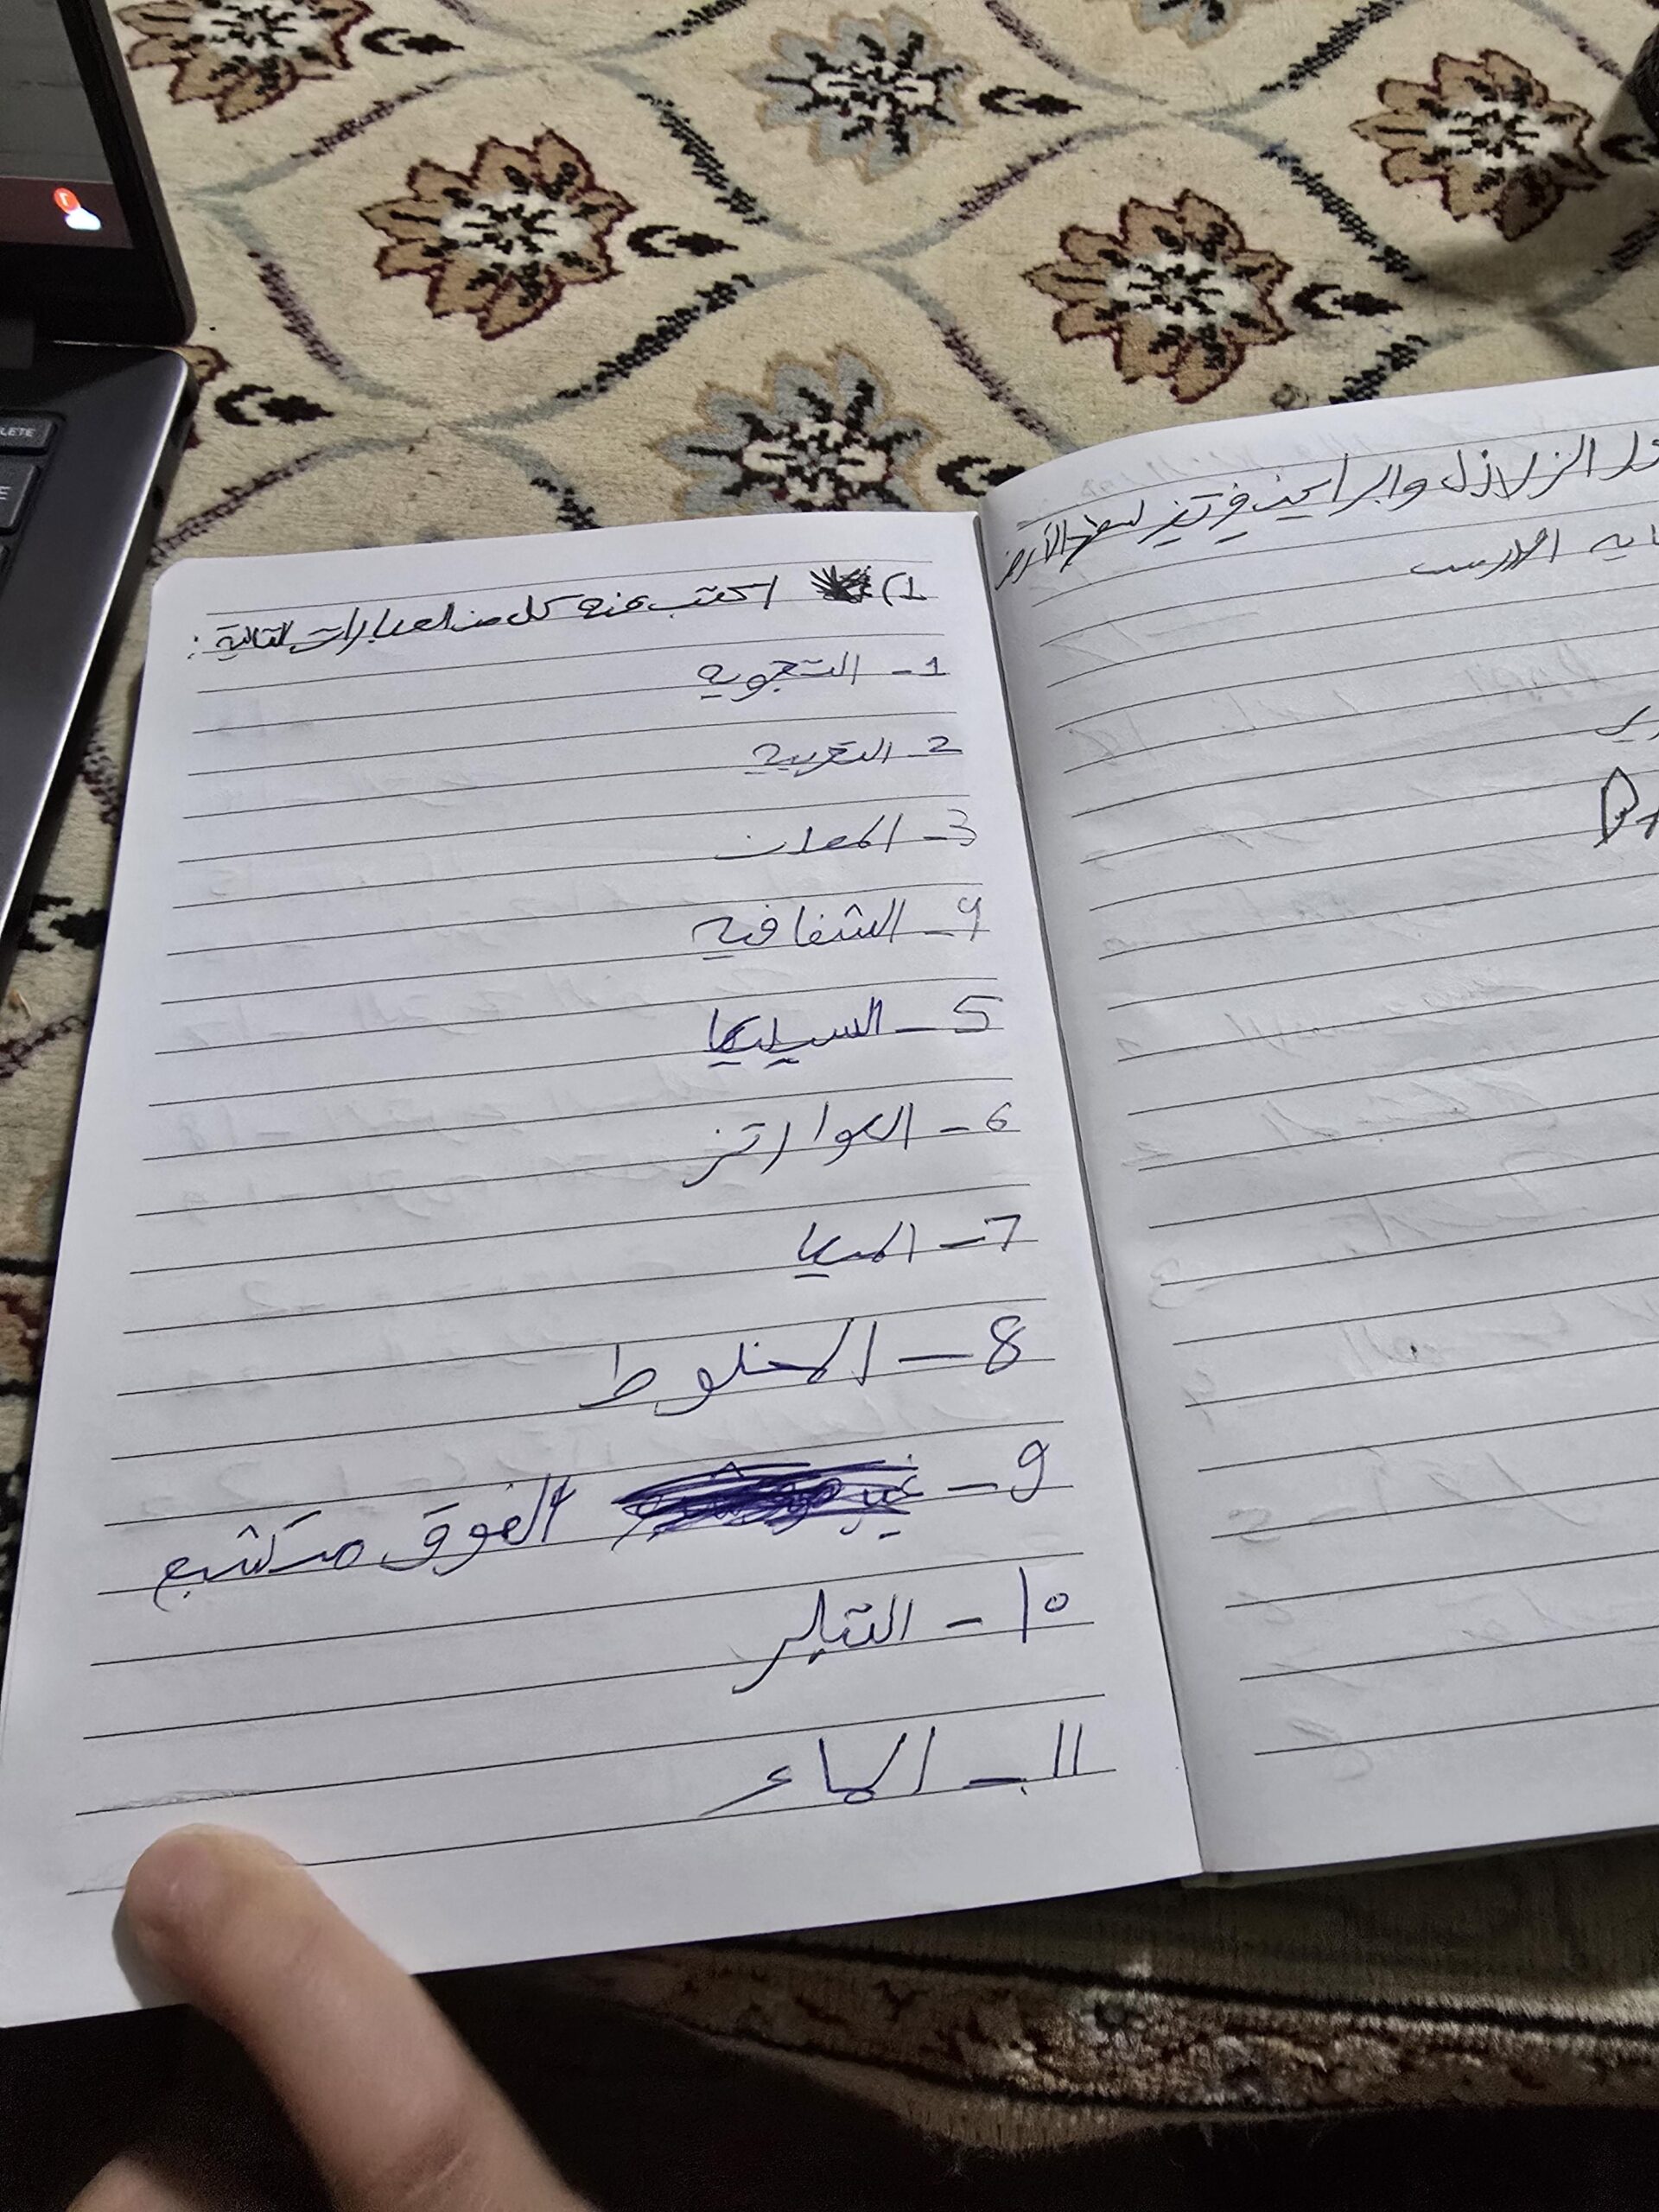 1) اكتب عن كل من العبارات التالية :
1- التجوية
2- التعرية
3- المعدن
4- الشفافية
5- السيليكا
6- الكوارتز
7- الميكا
8- المخلوط
9- غير الفوق متشبع
10- التبلر
11- الماء
الزلازل والبراكين في تغير لسطح الأرض
DELETE